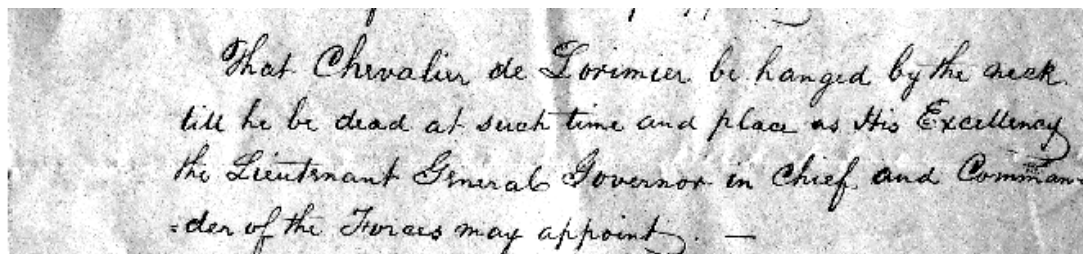 That Chevalier de Lorimier be hanged by the neck
till he be dead at such time and place as His Excellency
the Lieutenant General Governor in Chief and Comman-
=der of the Forces may appoint. —